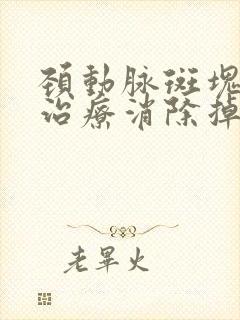 頚動脉斑塊
治療消除掉
老畢火